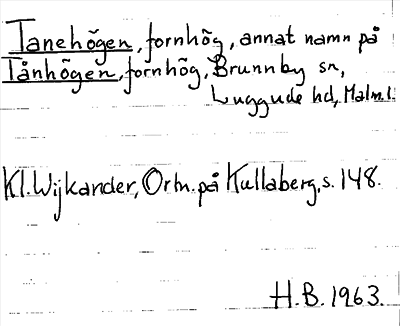 Tanehögen, fornhög, annat namn på
Tånhögen, fornhög, Brunnby sn,
Luggude hd, Malm.l.
Kl. Wijkander, Ortn. på Kullaberg, s. 148.
H.B. 1963.